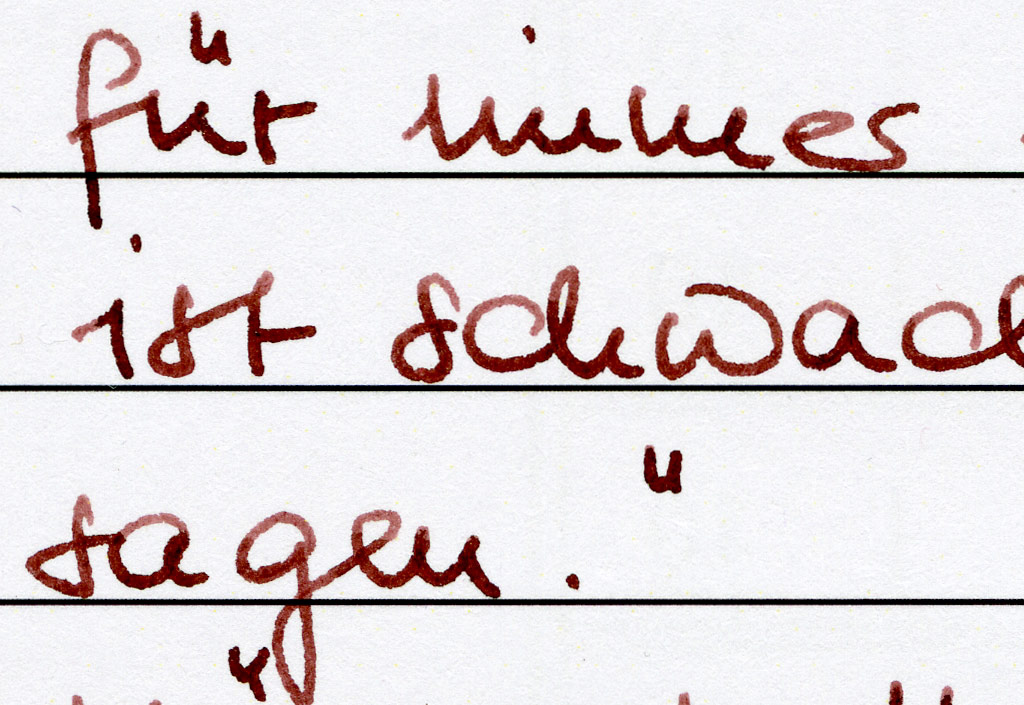 für immer
ist schwach
sagen."